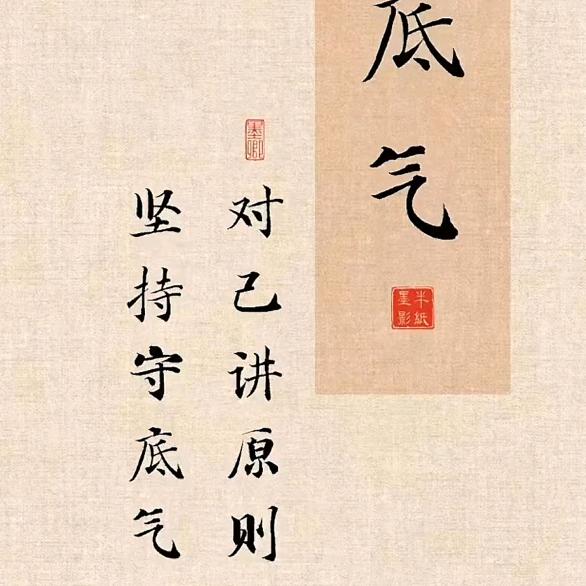 底气
半纸墨影
墨卿
对己讲原则
坚持守底气